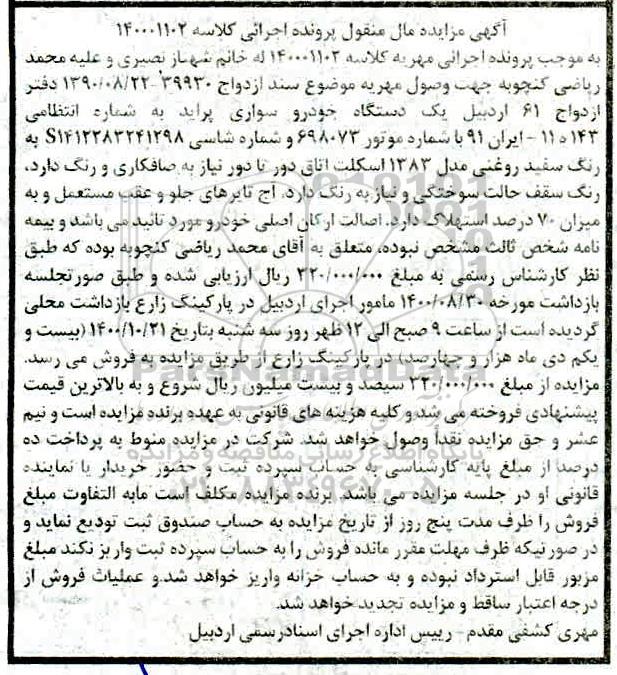 آگهی مزایده مال منقول پرونده اجرائی کلاسه ۱۴۰۰۰۱۱۰۲
به موجب پرونده اجرائی مهریه کلاسه ۱۴۰۰۰۱۱۰۲ له خانم شهناز نصیری و علیه محمد
ریاضی کنجوبه جهت وصول مهریه موضوع سند ازدواج ۳۹۹۳۰-۱۳۹۰/۰۸/۲۲ دفتر
ازدواج ۶۱ اردبیل یک دستگاه خودرو سواری پراید به شماره انتظامی
۱۴۳ ه ۱۱ - ایران ۹۱ با شماره موتور ۶۹۸۰۷۳ و شماره شاسی S۱۴۱۲۲۸۳۲۴۱۲۹۸ به
رنگ سفید روغنی مدل ۱۳۸۳ اسکلت اتاق دور تا دور نیاز به صافکاری و رنگ دارد،
رنگ سقف حالت سوختگی و نیاز به رنگ دارد. آج تایرهای جلو و عقب مستعمل و به
میزان ۷۰ درصد استهلاک دارد. اصالت ارکان اصلی خودرو مورد تائید می باشد و بیمه
نامه شخص ثالث مشخص نبوده، متعلق به آقای محمد ریاضی کنجوبه بوده که طبق
نظر کارشناس رسمی به مبلغ ۳۲۰/۰۰۰/۰۰۰ ریال ارزیابی شده و طبق صورتجلسه
بازداشت مورخه ۱۴۰۰/۰۸/۳۰ مامور اجرای اردبیل در پارکینگ زارع بازداشت محلی
گردیده است از ساعت ۹ صبح الی ۱۲ ظهر روز سه شنبه بتاریخ ۱۴۰۰/۱۰/۲۱ (بیست و
یکم دی ماه هزار و چهارصد) در پارکینگ زارع از طریق مزایده به فروش می رسد.
مزایده از مبلغ ۳۲۰/۰۰۰/۰۰۰ سیصد و بیست میلیون ریال شروع و به بالاترین قیمت
پیشنهادی فروخته می شد و کلیه هزینه های قانونی به عهده برنده مزایده است و نیم
عشر و حق مزایده نقداً وصول خواهد شد. شرکت در مزایده منوط به پرداخت ده
درصد از مبلغ پایه کارشناسی به حساب سپرده ثبت و حضور خریدار یا نماینده
قانونی او در جلسه مزایده می باشد. برنده مزایده مکلف است مابه التفاوت مبلغ
فروش را ظرف مدت پنج روز از تاریخ مزایده به حساب صندوق ثبت تودیع نماید و
در صورتیکه ظرف مهلت مقرر مانده فروش را به حساب سپرده ثبت واریز نکند مبلغ
مزبور قابل استرداد نبوده و به حساب خزانه واریز خواهد شد. و عملیات فروش از
درجه اعتبار ساقط و مزایده تجدید خواهد شد.
مهری کشفی مقدم - رییس اداره اجرای اسناد رسمی اردبیل
ParsNamadData
پایگاه اطلاع رسانی مناقصه و مزایده